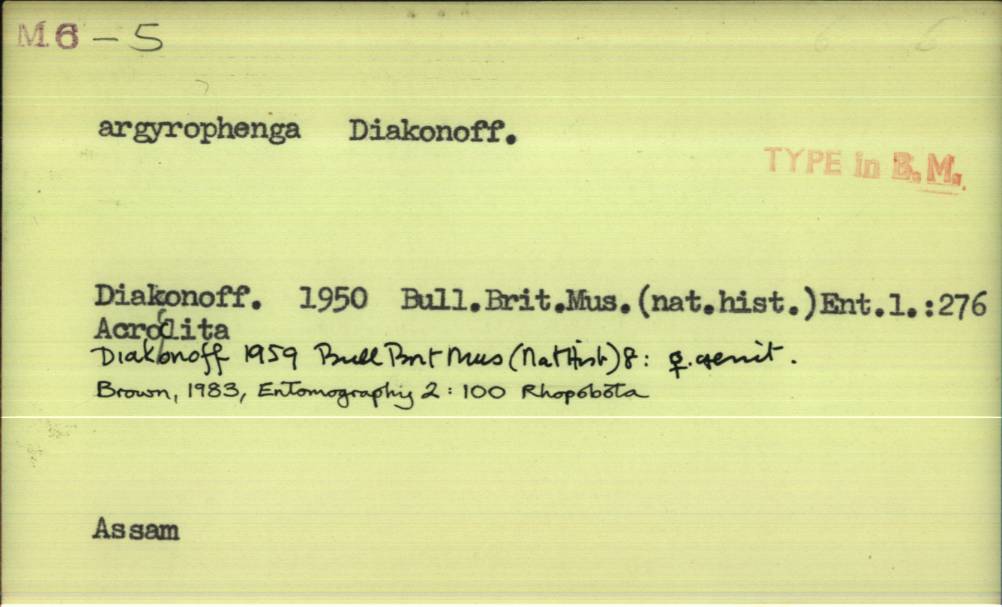 M.6 - 5
argyrophenga Diakonoff.
TYPE in B.M.
Diakonoff. 1950 Bull.Brit.Mus.(nat.hist.)Ent.1.:276
Acroclita
Diakonoff 1959 Bull Brit Mus (Nat Hist) 8: ♀. genit.
Brown, 1983, Entomography 2 : 100 Rhopobota
Assam